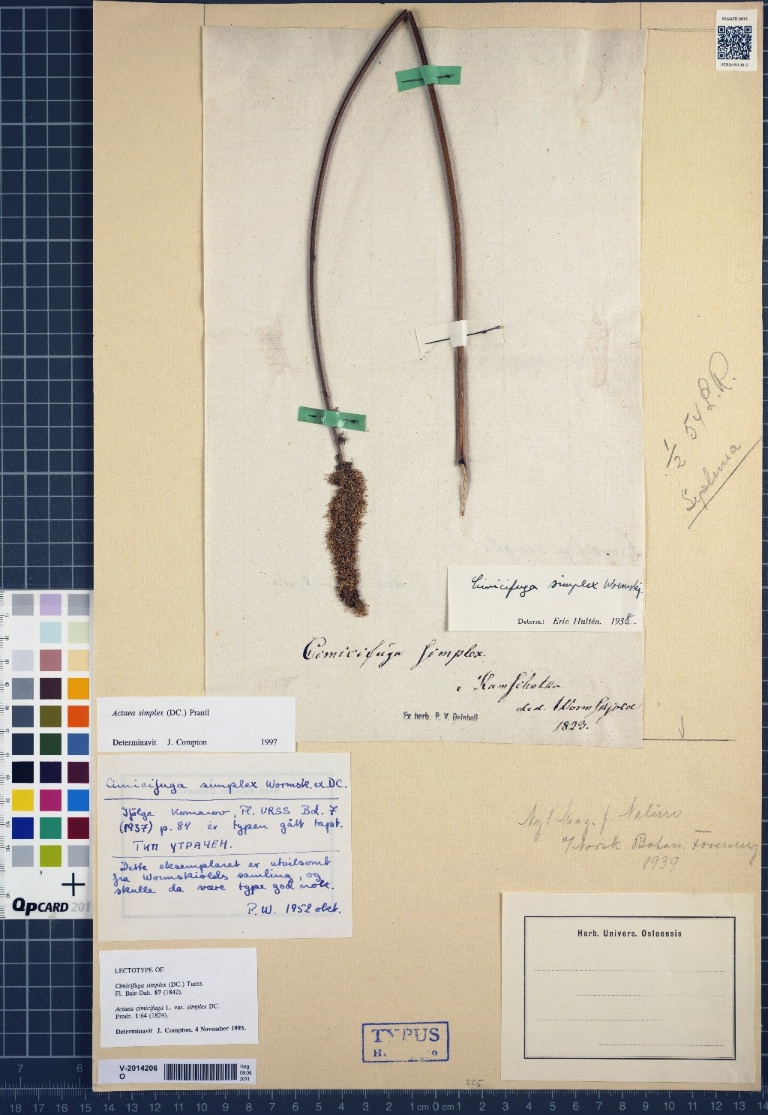 ½ 54 L.R.
Cimicifuga simplex Wormskj.
Determ.: Eric Hultén. 1938.
Cimicifuga simplex
e Kamschatka
ded. Wormskjold
1829.
Ex herb. P. V. Deinboll
Actaea simplex (DC.) Prantl
Determinavit J. Compton 1997
Cimicifuga simplex Wormsk. ex DC.
Ifølge Komarov, Fl. URSS Bd. 7
(1937) p. 84 er typen gått tapt.
ТИП УТРАЧЕН.
Dette eksemplaret er utvilsomt
fra Wormskiolds samling, og
skulle da være type god nok.
P.W. 1952 okt.
Nyt Mag. f. Naturv.
Norsk Botan. Forening
1939
LECTOTYPE OF
Cimicifuga simplex (DC.) Turcz.
Fl. Baic-Dah. 87 (1842).
Actaea cimicifuga L. var. simplex DC.
Prodr. 1:64 (1824).
Determinavit J. Compton, 4 November 1995.
Herb. Univers. Osloensis
TYPUS
V-2014206
O
QPCARD 201
7 6
18 17 16 15 14 13 12 11 10 9 8 7 6 5 4 3 2 1 cm 0 cm 1 2 3 4 5 6 7 8 9 10 11 12 13 14